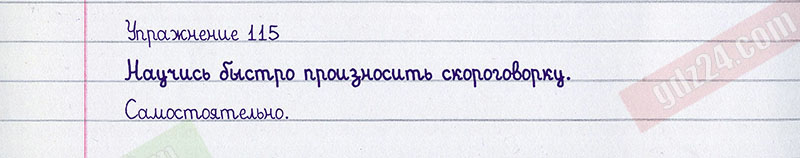 Упражнение 115
Научись быстро произносить скороговорку.
Самостоятельно.
gdz24.com